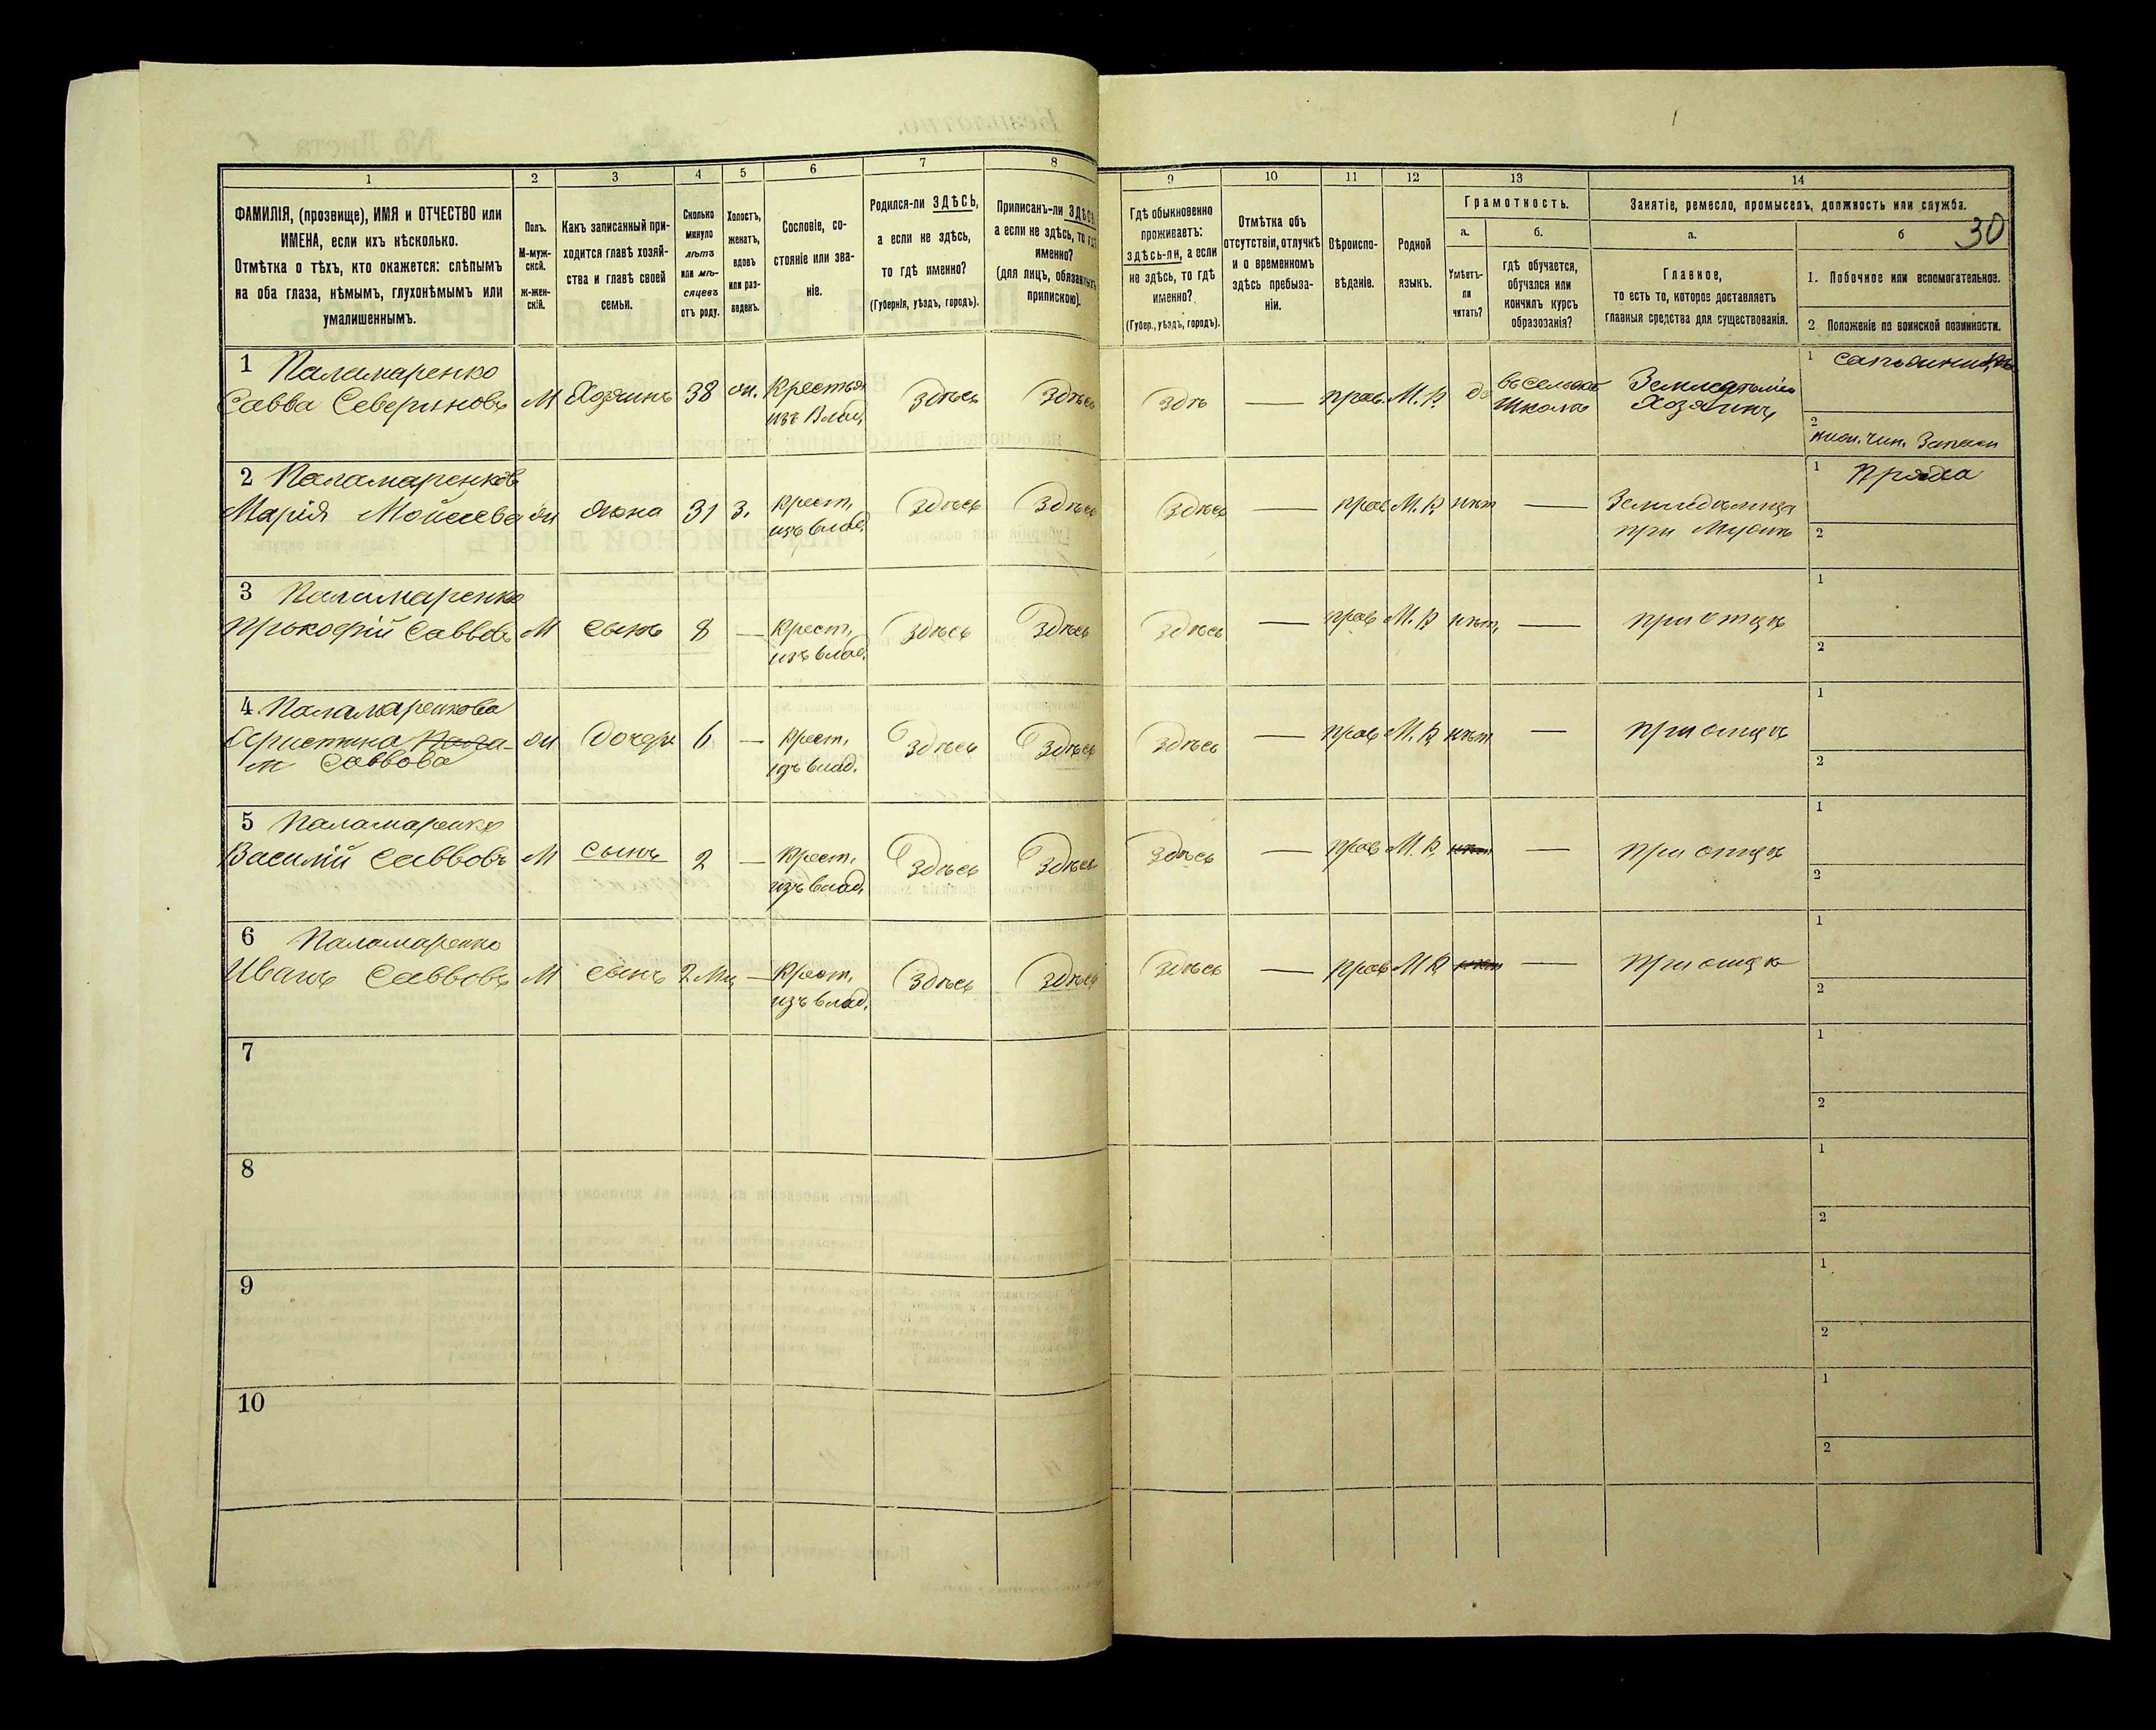 1
2
3
4
5
6
7
8
ФАМИЛІЯ, (прозвище), ИМЯ и ОТЧЕСТВО или
ИМЕНА, если ихъ нѣсколько.
Отмѣтка о тѣхъ, кто окажется: слѣпымъ
на оба глаза, нѣмымъ, глухонѣмымъ или
умалишеннымъ.
Полъ.
М-муж-
ской.
ж-жен-
скій.
Какъ записанный при-
ходится главѣ хозяй-
ства и главѣ своей
семьи.
Сколько
минуло
лѣтъ
или мѣ-
сяцевъ
отъ роду.
Холостъ,
женатъ,
вдовъ
или раз-
веденъ.
Сословіе, со-
стояніе или зва-
ніе.
Родился-ли ЗДѢСЬ,
а если не здѣсь,
то гдѣ именно?
(Губернія, уѣздъ, городъ).
Приписанъ-ли ЗДѢСЬ,
а если не здѣсь, то гдѣ
именно?
(для лицъ, обязанныхъ
припискою).
9
10
11
12
13
14
Гдѣ обыкновенно
проживаетъ:
здѣсь-ли, а если
не здѣсь, то гдѣ
именно?
(Губер., уѣздъ, городъ).
Отмѣтка объ
отсутствіи, отлучкѣ
и о временномъ
здѣсь пребыва-
ніи.
Вѣроиспо-
вѣданіе.
Родной
языкъ.
Грамотность.
а.
Умѣетъ-
ли
читать?
б.
гдѣ обучается,
обучался или
кончилъ курсъ
образозанія?
Занятіе, ремесло, промыселъ, должность или служба.
а.
Главное,
то есть то, которое доставляетъ
главныя средства для существованія.
б
30
1. Побочное или вспомогательное.
2 Положеніе по воинской повинности.
1 Паламаренко
Савва Севериновъ М Хозяинъ 38 ж. Крестья
изъ Влад. Здѣсь Здѣсь
Здѣ — прав. М. Р. да въ сельской
школѣ Земледѣліе
Хозяинъ
1
2
нижн. чин. Запаса
2 Паламаренкова
Марія Мойсеева ж жена 31 З. Крест.
изъ влад. Здѣсь Здѣсь
Здѣсь — прав М. Р. нѣт — Земледѣлица
при Мужѣ
1 Пряха
2
3 Паламаренко
Прокофій Саввовъ М сынъ 8 — Крест.
изъ влад. Здѣсь Здѣсь
Здѣсь — прав М. Р нѣт, — при отцѣ
1
2
4 Паламаренкова
Христина Пала-
м Саввова ж дочерь 6 — Крест.
изъ влад. Здѣсь Здѣсь
Здѣсь — прав М. Р. нѣт — при отцѣ
1
2
5 Паламаренко
Василій Саввовъ М сынъ 2 — Крест.
изъ влад. Здѣсь Здѣсь
Здѣсь — прав М. Р. нѣт — при отцѣ
1
2
6 Паламаренко
Иванъ Саввовъ М сынъ 2 Мц — Крест.
изъ влад. Здѣсь Здѣсь
Здѣсь — прав М Р. нѣт — при отцѣ
1
2
7
1
2
8
1
2
9
1
2
10
1
2